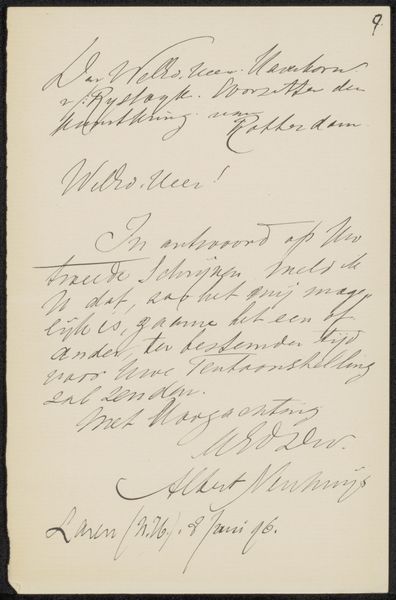 9.
Den Weled. Heer. Haverkorn
v. Rijsewijk. Voorzitter den
Kunstkring van
Rotterdam
Weled. Heer!
In antwoord op Uw
tweede Schrijven, meld ik
U dat, zoo het mij moge-
lijk is, gaarne het een of
ander, ter bestemder tijd
voor Uwe Tentoonstelling
zal zenden.
Met Hoogachting
UEdDw.
Albert Neuhuys
Laren (N.H). 8 Juni 96.